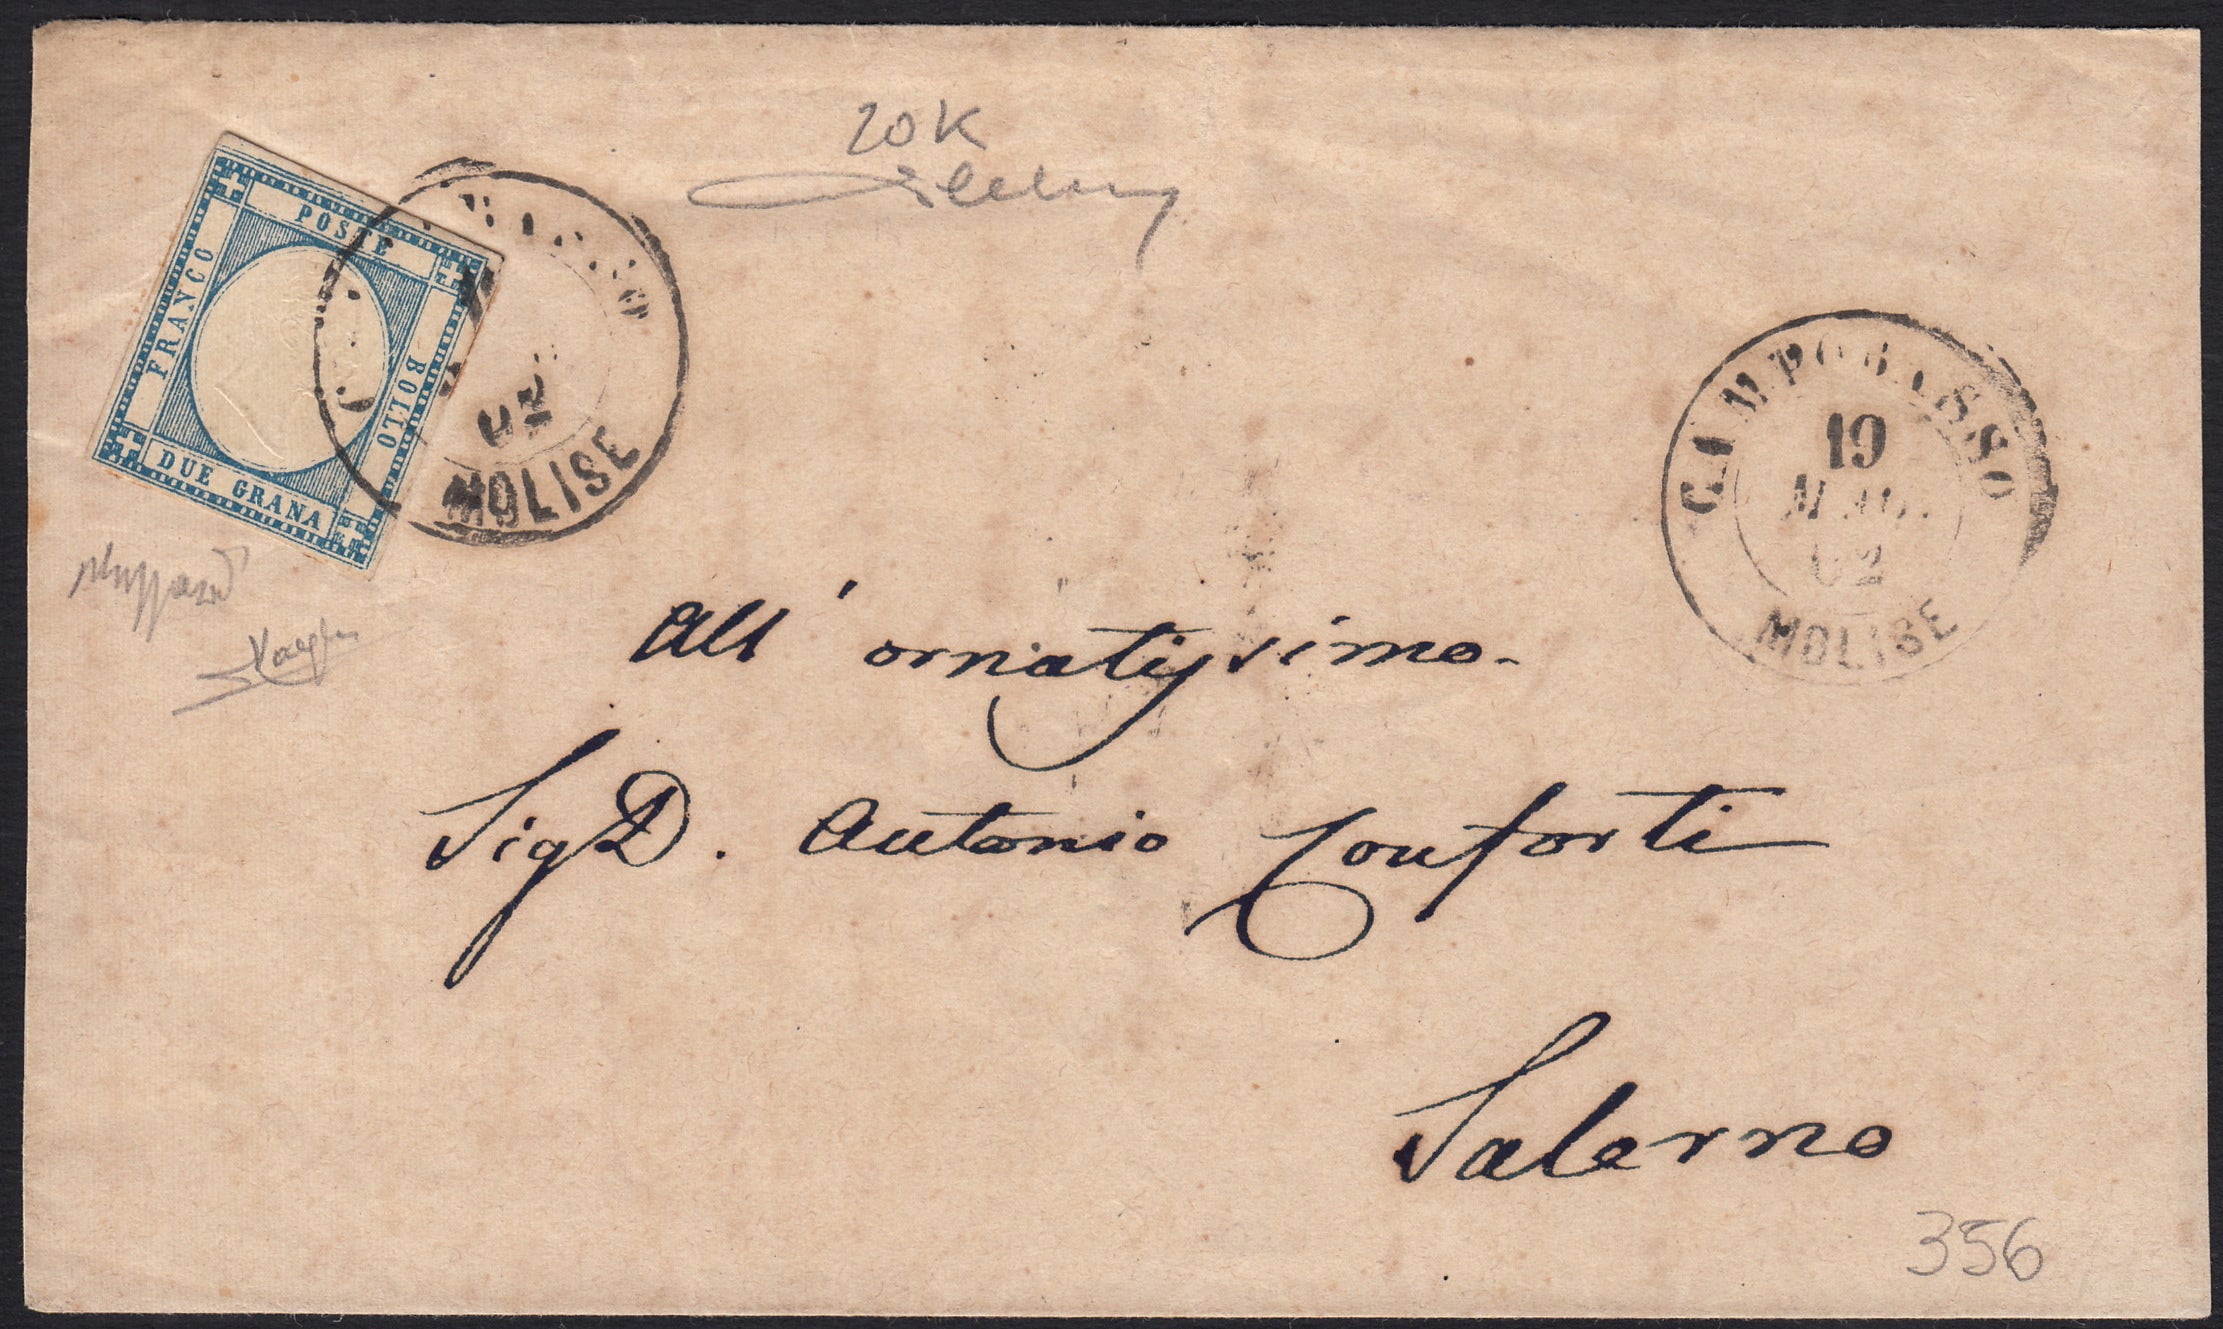 20K
FRANCO
POSTE
BOLLO
DUE GRANA
02
MOLISE
CAMPOBASSO
19
MAG.
62
MOLISE
All' ornatissimo
Sig D. Antonio Conforti
Salerno
356